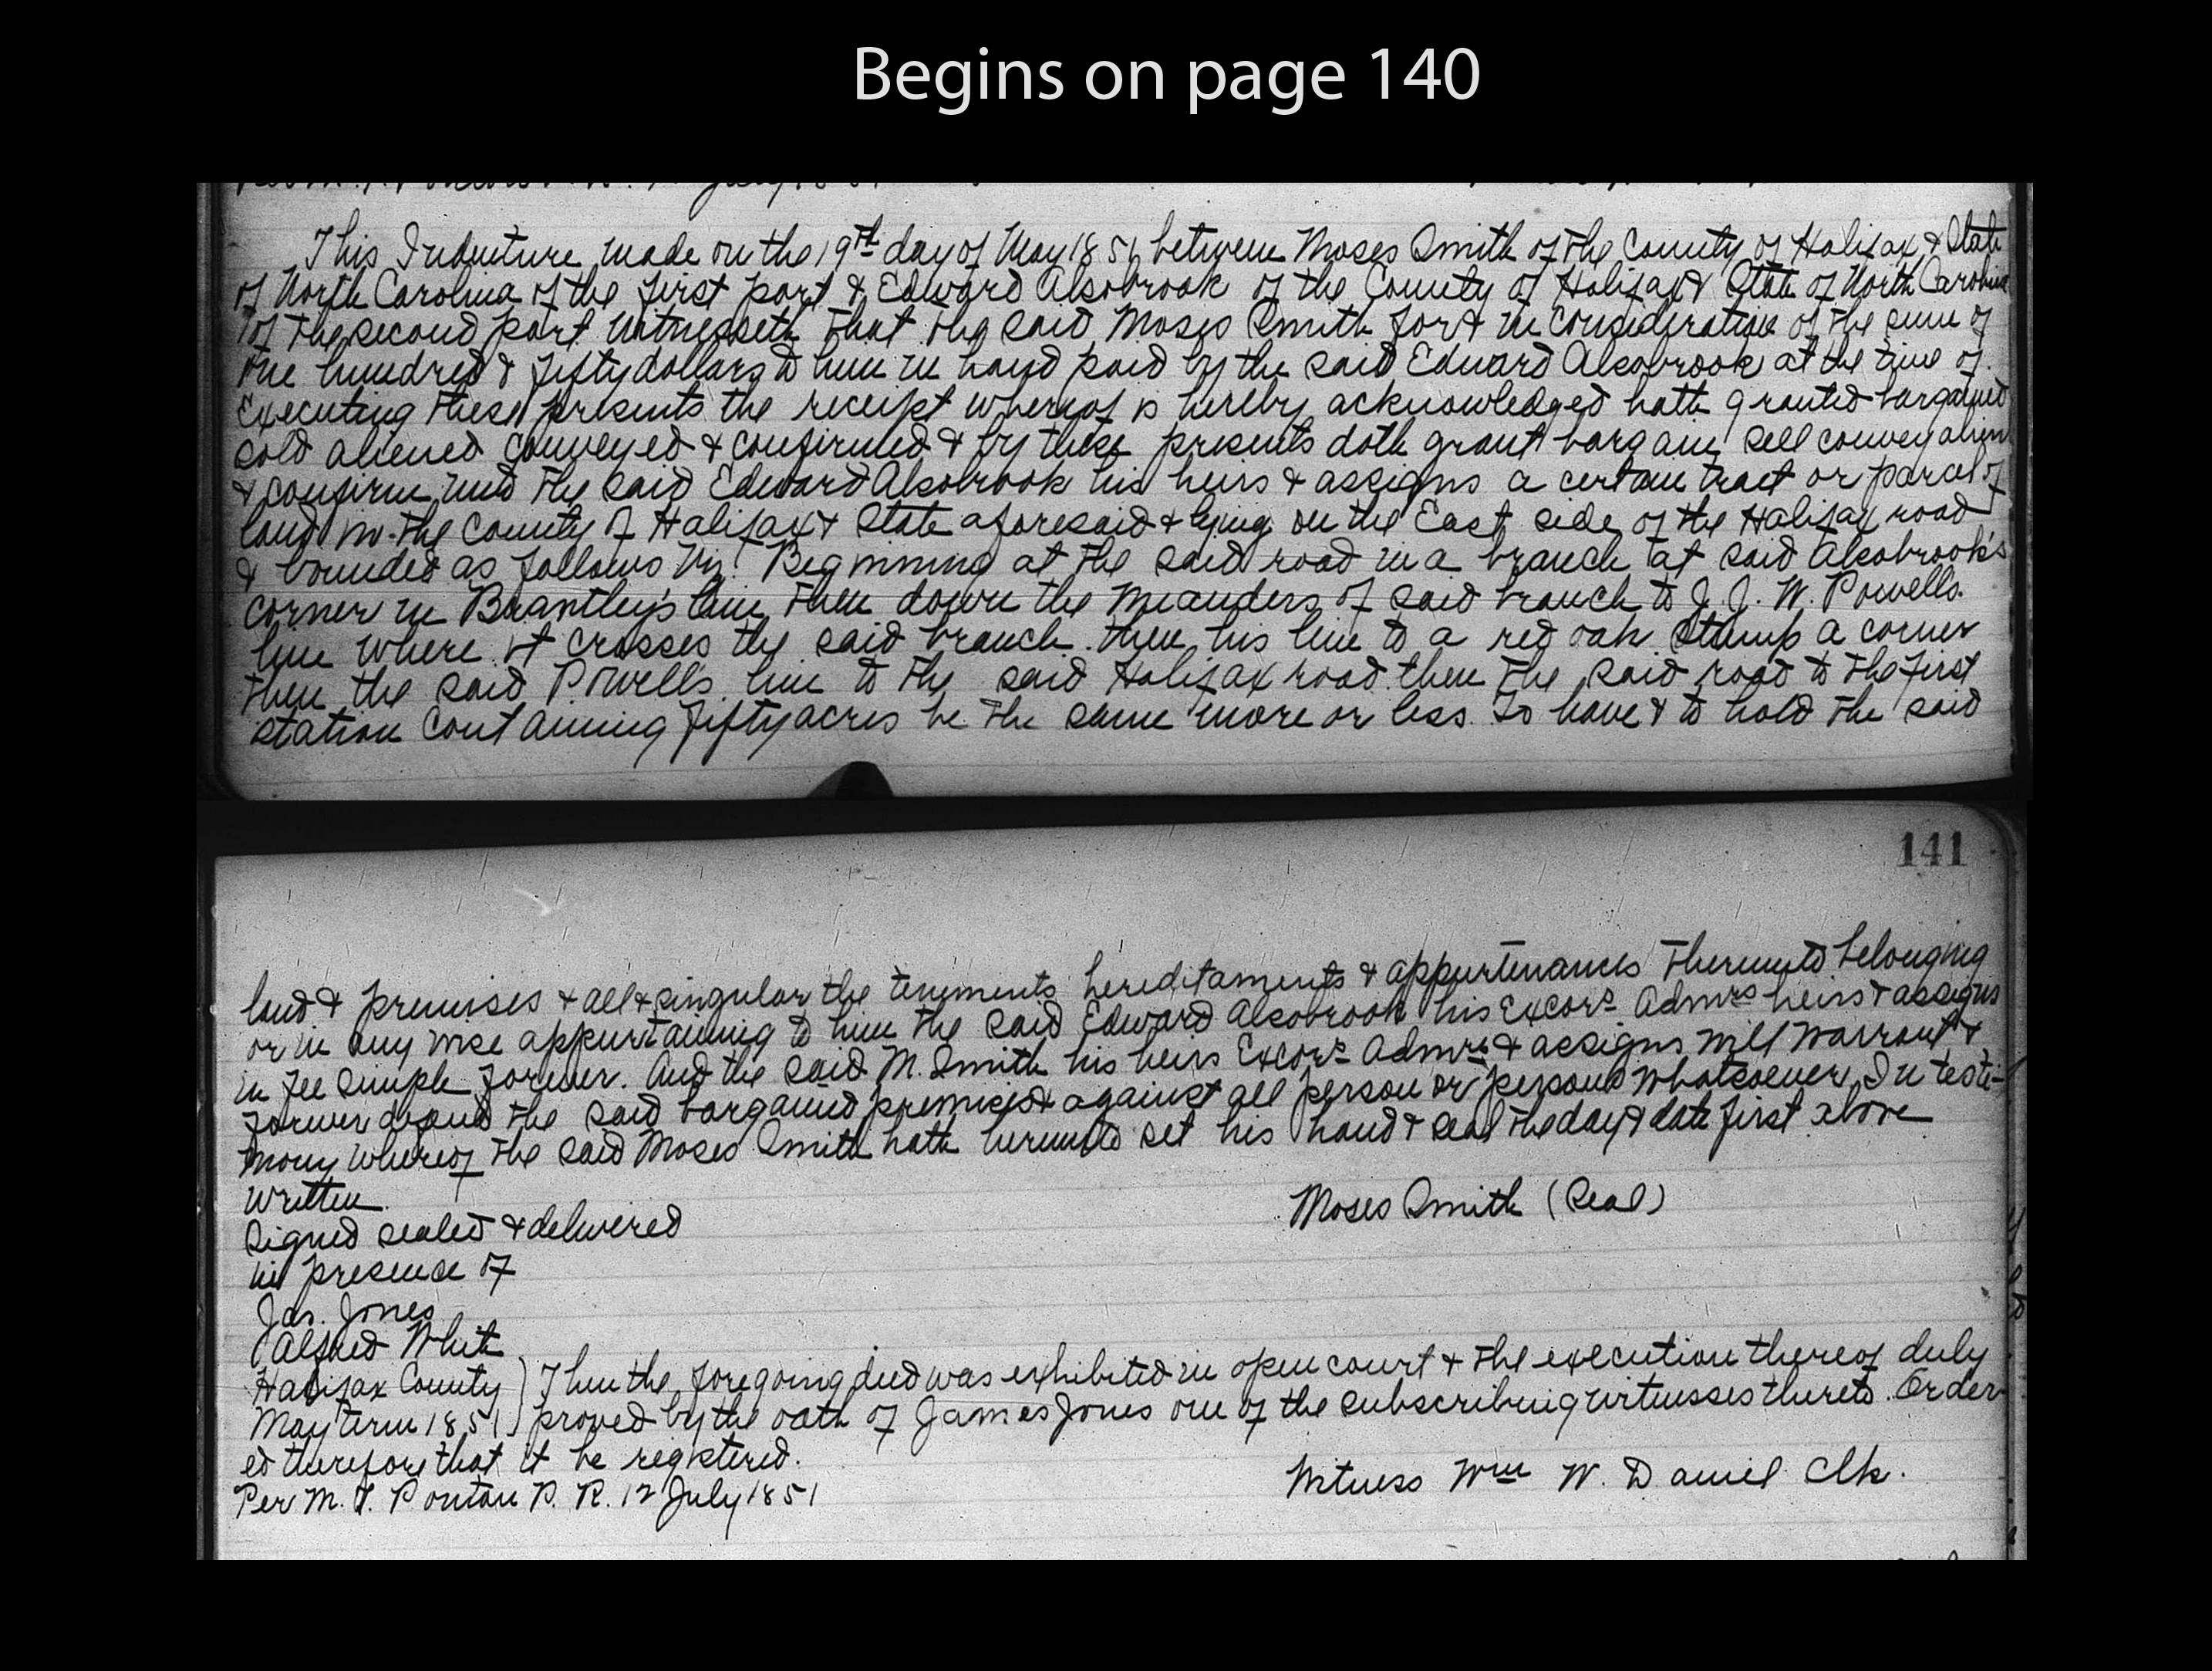 Begins on page 140
This Indenture made on the 19th day of May 1851 between Moses Smith of the County of Halifax & State
of North Carolina of the first part & Edward Alsobrook of the County of Halifax & State of North Carolina
of the second part Witnesseth that the said Moses Smith for & in consideration of the sum of
one hundred & fifty dollars to him in hand paid by the said Edward Alsobrook at the time of
Executing these presents the receipt whereof is hereby acknowledged hath granted bargained
sold aliened conveyed & confirmed & by these presents doth grant bargain sell convey alien
& confirm unto the said Edward Alsobrook his heirs & assigns a certain tract or parcel of
land in the County of Halifax & State aforesaid & lying on the East side of the Halifax road
& bounded as follows Viz: Beginning at the said road in a branch at said Alsobrook's
corner in Brantley's line then down the meanders of said branch to J. J. W. Powells
line where it crosses the said branch. then his line to a red oak stump a corner
then the said Powells line to the said Halifax road then the said road to the first
station containing fifty acres be the same more or less. To have & to hold the said
141
land & premises & all & singular the tenements hereditaments & appurtenances thereunto belonging
or in any wise appurtaining to him the said Edward Alsobrook his Excors Admrs heirs & assigns
in fee simple forever. And the said M. Smith his heirs Excors Admrs & assigns will warrant &
forever defend the said bargained premises & against all person or persons whatsoever. In testi-
mony whereof the said Moses Smith hath hereunto set his hand & seal the day & date first above
written.
Moses Smith (Seal)
Signed sealed & delivered
in presence of
Jas. Jones
Alfred White
Halifax County ) Then the foregoing deed was exhibited in open court & the execution thereof duly
May term 1851 ) proved by the oath of James Jones one of the subscribing witnesses thereto. Order
ed therefore that it be registered.
Witness Wm W. Daniel Clk.
Per M. T. Ponton P. R. 12 July 1851